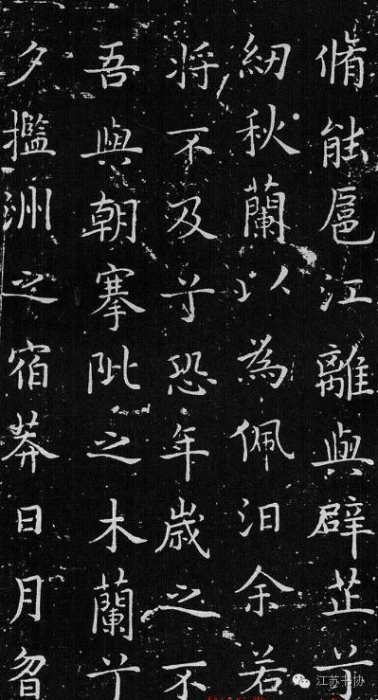 脩能扈江離與辟芷兮
紉秋蘭以為佩汨余若
将不及兮恐年歲之不
吾與朝搴阰之木蘭兮
夕㩜洲之宿莽日月曶
江苏书协